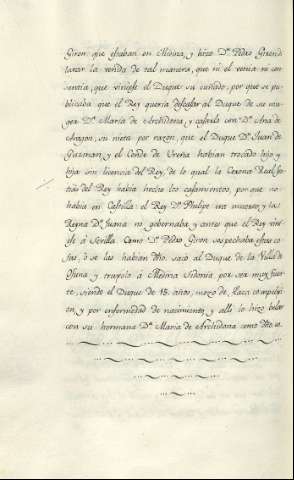 Giron que estaban en Medina, y hizo Dn. Pedro Giron di-
latar la venida de tal manera, que ni el venia ni con-
sentia, que viniese el Duque su cuñado, por que se pu-
blicaba que el Rey queria descasar al Duque de su mu-
ger Dª. Maria de Archidona, y casarlo con Dª. Ana de
Aragon, su nieta por razon, que el Duque Dn. Juan de
Guzman, y el Conde de Ureña habian trocado hijo y
hija sin licencia del Rey, de lo qual la Corona Real,
del Rey habia hecha los casamientos, por que no
habia en Castilla el Rey Dn. Phelipe era muerto, y la
Reyna Dª. Juana ni gobernaba, y antes que el Rey vini-
ese à Sevilla. Como Dn. Pedro Giron sospechaba estas co-
sas, ò se las habian dho. sacò al Duque de la Villa de
Osuna y truxolo à Medina Sidonia por ser muy fuer-
te, siendo el Duque de 15. años, mozo de, flaca complexi-
on, y por enfermedad de nacimiento, y alli lo hizo velar
con su hermana Dª. Maria de Archidona como dho. es.